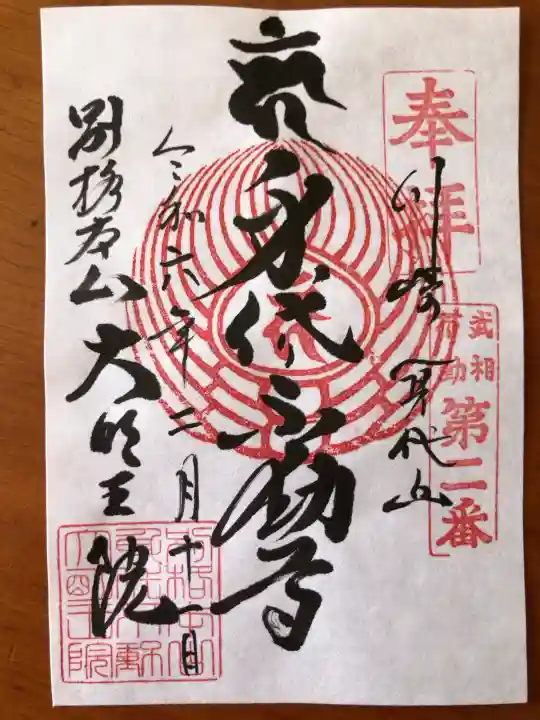 奉拝
川崎身代山
武相
不動
第二番
身代不動尊
令和六年二月十一日
別格本山大明王院